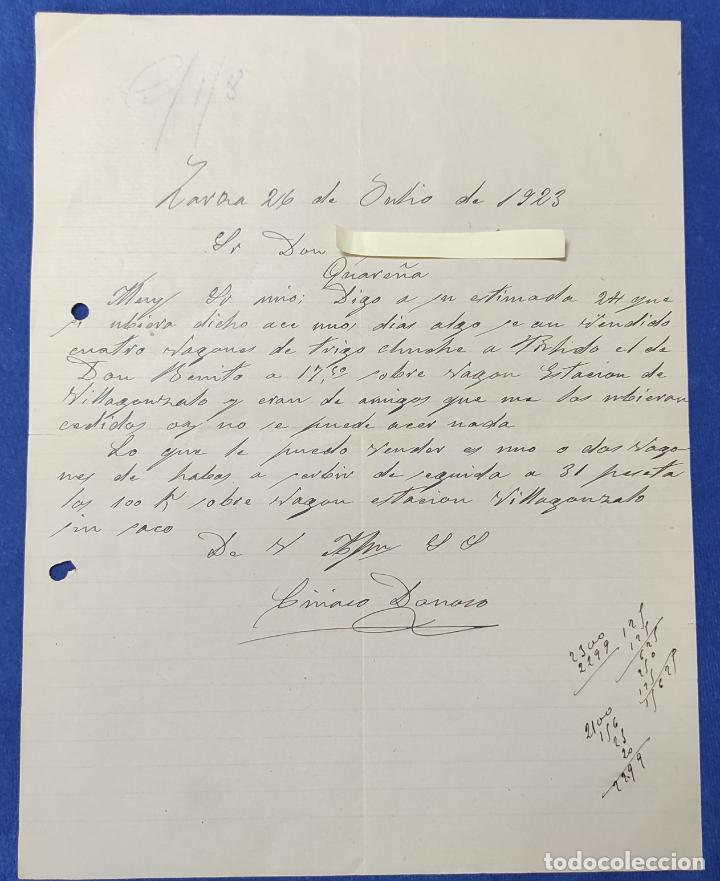 C/1/8
Zarza 26 de Julio de 1923
Sr Don
Guareña
Muy Sr mio; Digo a su estimada 24 que
si ubiera dicho ace unos dias algo se an vendido
cuatro vagones de trigo chinche a el de
Don Benito a 17,50 sobre vagon Estacion de
Villagonzalo y eran de amigos que me los ubieran
cedidos oy no se puede acer nada
Lo que le puedo vender es uno o dos vago
nes de habas a recibir de seguida a 31 peseta
los 100 K sobre vagon estacion Villagonzalo
sin saco
De V S S
Donoso
2300
2299
125
125
625
250
125
15625
2100
156
23
20
2299
todocoleccion